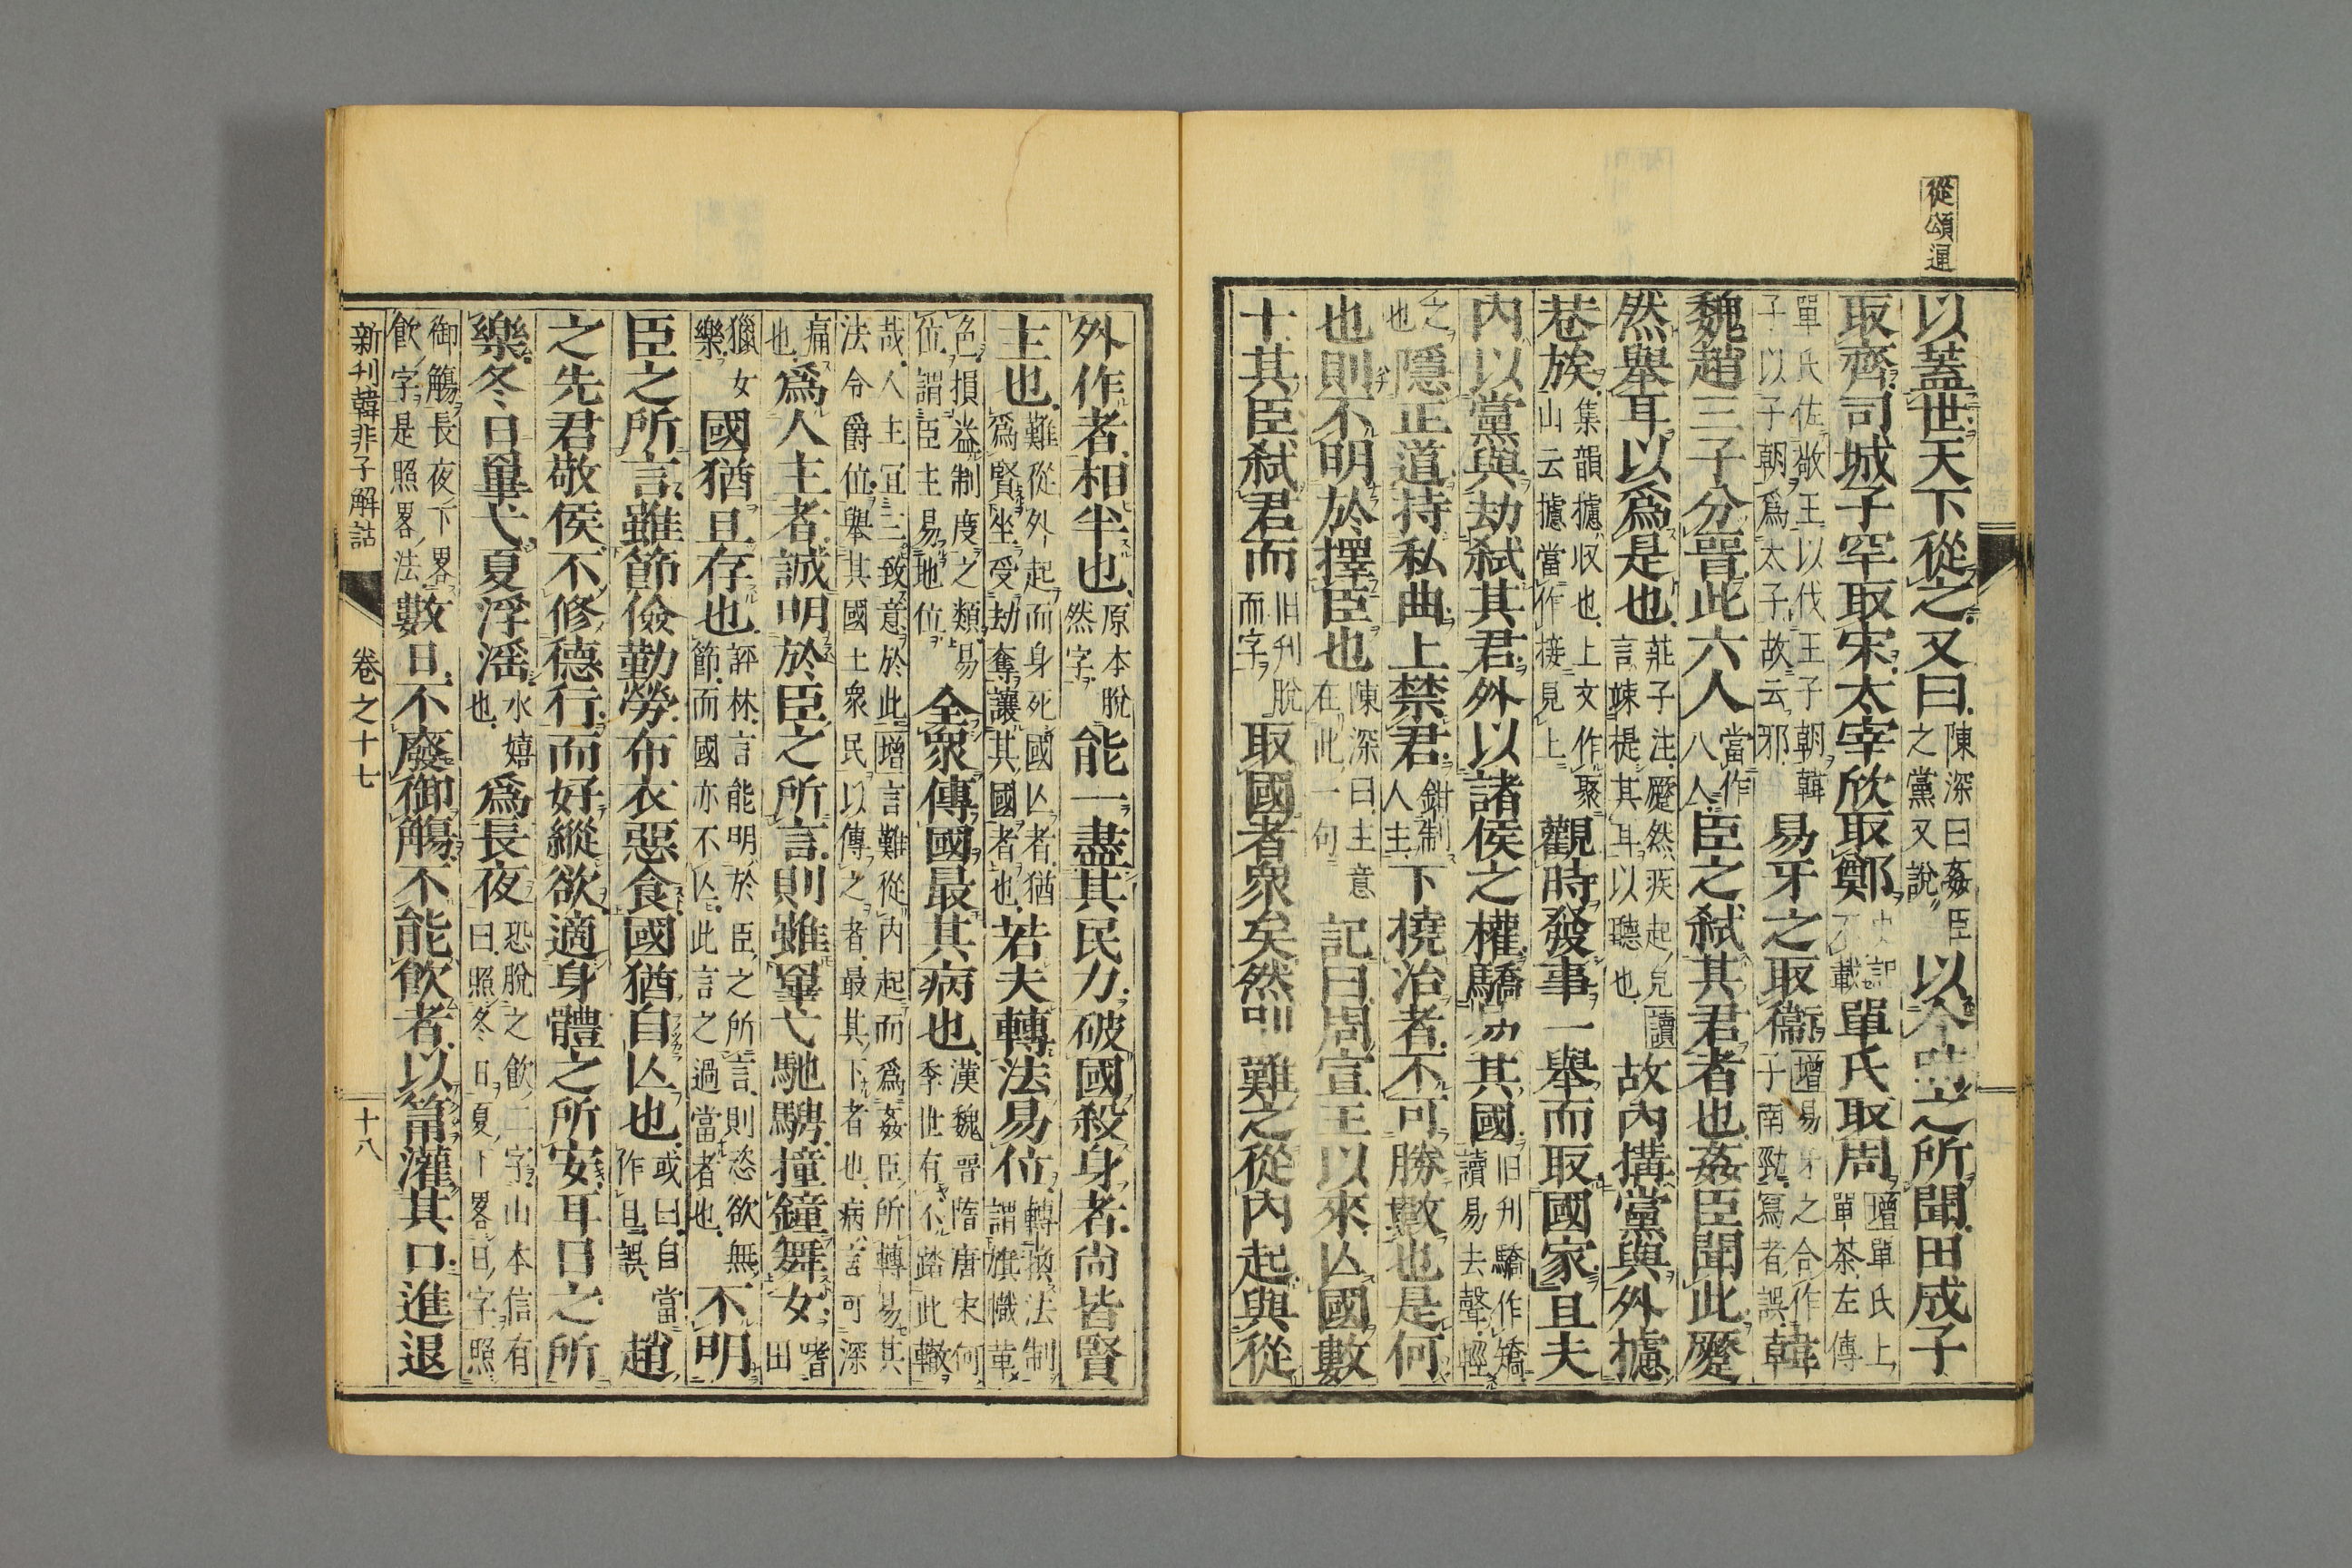 從頌通
以蓋世天下從之又曰陳深曰姦臣之黨又說以今時之所聞田成子
取齊司城子罕取宋太宰欣取鄭史記不載單氏取周增單氏上單茶左傳
單氏佐敬王以伐王子朝韓子以子朝爲太子故云邪易牙之取衞增易牙之合作子南勁寫者誤韓
魏趙三子分晉此六人當作八人臣之弑其君者也姦臣聞此蹷
然舉耳以爲是也莊子注蹷然疾起皃言竦梶其耳以聽也讀故內搆黨與外攄
巷族集韻攄収也上文作聚山云攄當作接見上觀時發事一舉而取國家且夫
內以黨與劫弑其君外以諸侯之權驕易其國旧刋驕作矯讀易去聲輕
之也隱正道持私曲上禁君鉗制人主下撓治者不可勝數也是何
也則不明於擇臣也陳深曰主意在此一句記曰周宣王以來亾國數
十其臣弑君而旧刋脫而字取國者衆矣然則難之從內起與從
外作者相半也原本脫然字能一盡其民力破國殺身者尙皆賢
主也難從外起而身死國亾者猶爲賢坐受劫奪讓其國者也若夫轉法易位轉換法制謂旗幟革
色損益制度之類易位謂臣主易地位全衆傳國最其病也漢魏晉隋唐宋何季世有不踏此轍
哉人主冝三致意於此增言難從內起而爲姦臣所轉易其法令爵位舉其國土衆民以傳之者最其下者也病言可深
痛也爲人主者誠明於臣之所言則雖罼弋馳騁撞鐘舞女嗜田
獵女樂國猶且存也評林言能明於臣之所言則恣欲無節而國亦不亾此言之過當者也不明
臣之所言雖節儉勤勞布衣惡食國猶自亾也或曰自當作且誤趙
之先君敬侯不修德行而好縱欲適身體之所安耳目之所
樂冬日罼弋夏浮滛水嬉也爲長夜恐脫之飮二字山本信有曰照冬日夏下畧日字照
御觴長夜下畧飮字是照畧法數日不廢御觴不能飮者以筩灌其口進退
新刋韓非子解詁
卷之十七
十八